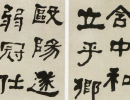 含中和
立乎鄉
歐陽遂
弱冠仕